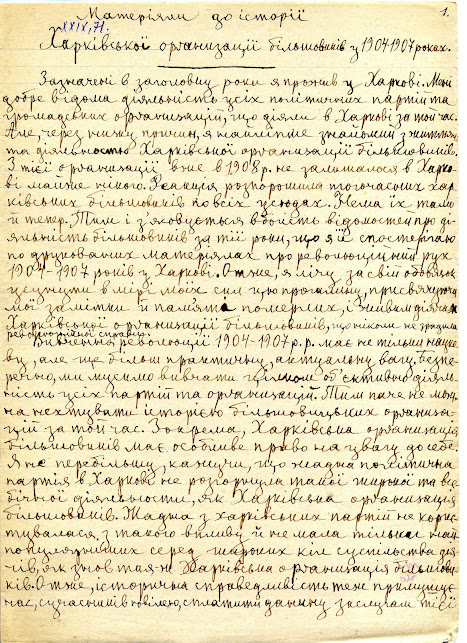 Матеріяли до історії
1.
XXIX, 71.
Харківської організації більшовиків у 1904-1907 роках.
Зазначені в заголовку роки я прожив у Харкові. Мені
добре відома діяльність усіх політичних партій та
громадських організацій, що діяли в Харкові за той час.
Але, через низку причин, я найліпше знайомий з життям
та діяльностю Харківської організації більшовиків.
З тієї організації вже в 1908 р. не залишалося в Харко-
ві майже нікого. Реакція розпорошила тогочасних хар-
ківських більшовиків по всіх усюдах. Нема їх там
й тепер. Тим і з'ясовується вбогість відомостей про ді-
яльність більшовиків за тії роки, що я й спостерігаю
по друкованих матеріялах про революційний рух
1904-1907 років у Харкові. Отже, я лічу за свій обов'язок
усунути в мірі моїх сил цю прогалину, присвячуючи
мої замітки й пам'яті померлих, і живим діячам
Харківської організації більшовиків, що ніколи не зрадили
революційної справи.
Вивчення революції 1904-1907 р.р. має не тільки науко-
ву, але ще більш практичну, актуальну вагу. Безпе-
речно, ми мусимо вивчати цілком об'єктивно діяль-
ність усіх партій та організацій. Тим паче не мож-
на нехтувати історією більшовицьких організа-
цій за той час. Зокрема, Харківська організація
більшовиків має особливе право на увагу до себе.
Я не перебільшу, кажучи, що жадна політична
партія в Харкові не розгорнула такої широкої та все-
бічної діяльности, як Харківська організація
більшовиків. Жадна з харківських партій не корис-
тувалася з такого впливу й не мала тільки най-
популярніших серед широких кіл суспільства дія-
чів, як знов таки Харківська організація більшови-
ків. Отже, історична справедливість теж примушує
нас, сучасників і свідків, сплатити данину заслугам тієї